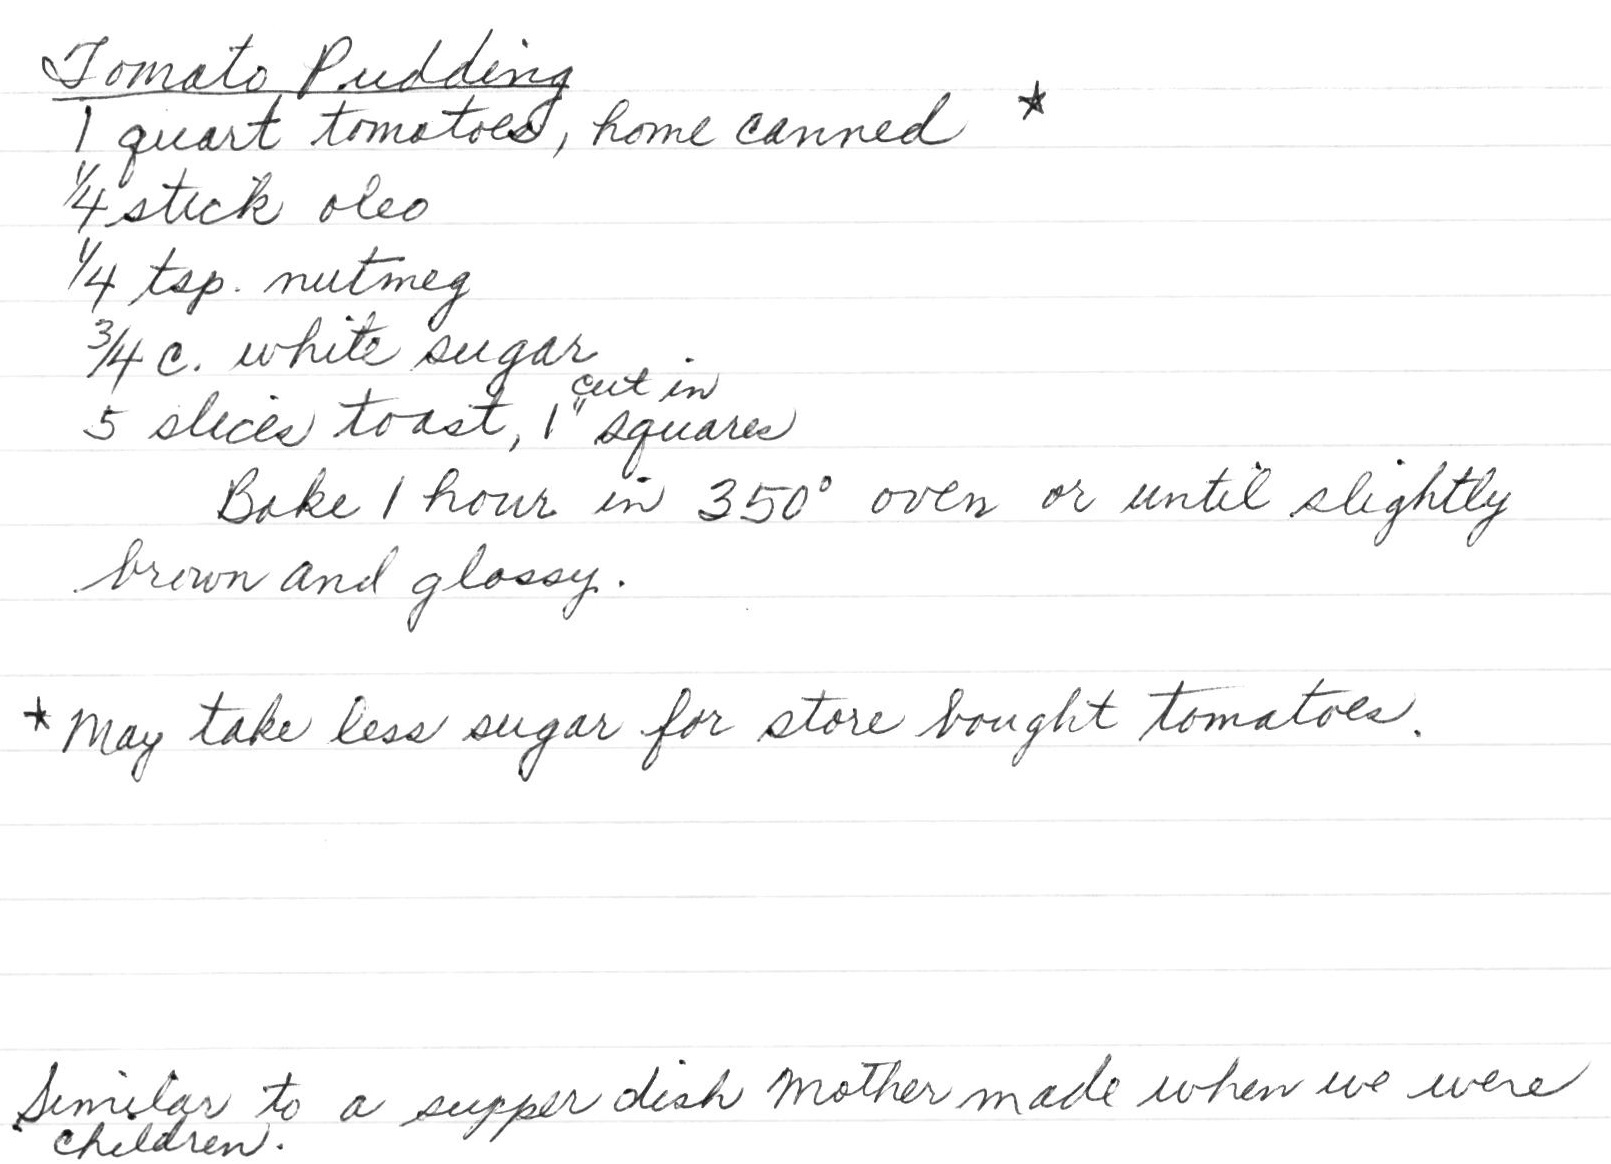 Tomato Pudding
1 quart tomatoes, home canned *
1/4 stick oleo
1/4 tsp. nutmeg
3/4 c. white sugar
cut in
5 slices toast, 1" squares
Bake 1 hour in 350° oven or until slightly
brown and glossy.
* May take less sugar for store bought tomatoes.
Similar to a supper dish Mother made when we were
children.